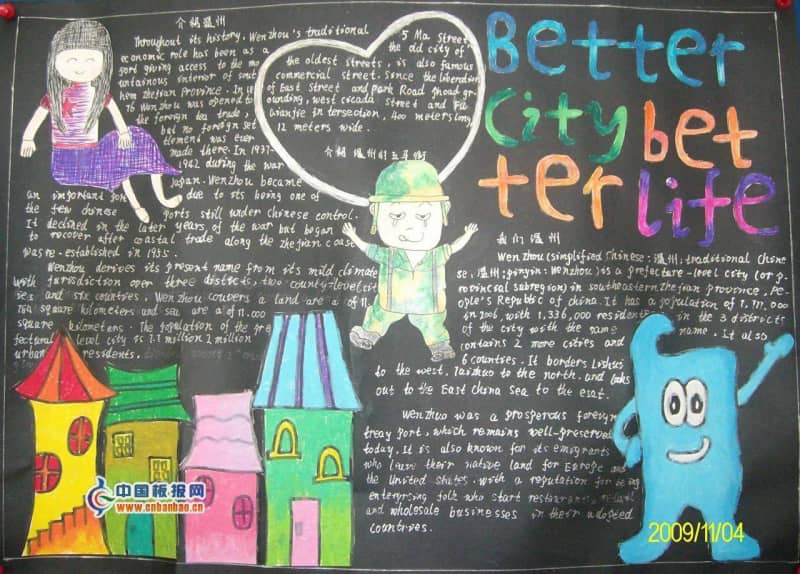 Better
City bet
ter life
介绍温州
Throughout its history, Wenzhou's traditional
economic role has been as a
port giving access to the mo
untainous interior of sout
hern zhejian province. In 18
76 Wenzhou was opened to
the foreign tea trade,
but no foreign set
tlement was ever
made there. In 1937-
1942 during the war
Japan. Wenzhou became
an important for due to its being one of
the few chinese ports still under chinese control.
It declined in the later years of the war but began
to recover after coastal trade along the zhejian coase
was re-established in 1955.
Wenzhou derives its present name from its mild climate
with furisdiction over three districts, two county-level citi
es and six countries. Wenzhou couvers a land are a of 11
784 square kilometers and sea are a of 11.000
square kilometers. The population of the pre
fectural level city is 7.7 million 2 million
urban residents.
5 Ma Street
the old city of
the oldest streets, is also famous
commercial street. Since the liberation
of East street and park Road
ounding, west cicada street and Fu
Qianjie intersection, 400 meters long,
12 meters wide.
介绍温州的五马街
我们温州
Wen zhou (simplified Chinese: 温州; traditional chine
se, 温州; pinyin: Wenzhou) is a prefecture-level city (or p
rovincial subregion) in southeastern zhejian province, Pe-
ople's Republic of china. It has a population of
in 2006, with 1,336,000 resident in the 3 districts
of the city with the same name. It also
contains 2 more cities and
6 countries. It borders Lishui
to the west, Taizhou to the north, and looks
out to the East China Sea to the esat.
Wenzhuo was a prosperous foreign
treay port, which remains well-preserved
today. It is also known for its emigrants
who leave their native land for Europe and
the United states, with a reputation for being
enterprising folk who start restaurants, retail
and wholesale businesses in their adopted
countries.
中国板报网
www.cnbanbao.cn
2009/11/04